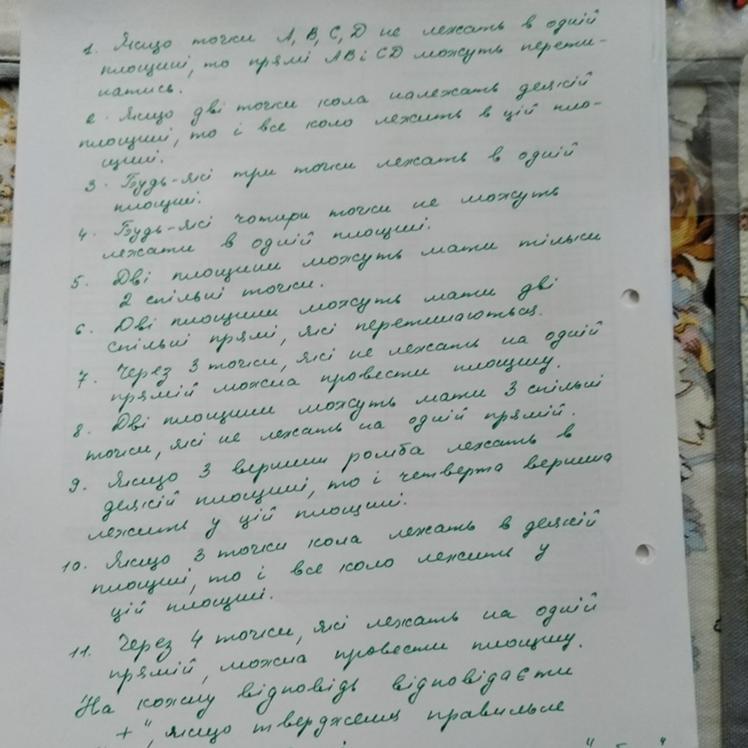 1. Якщо точки A, B, C, D не лежать в одній
площині, то прямі AB і CD можуть перети-
натись.
2. Якщо дві точки кола належать деякій
площині, то і все коло лежить в цій пло-
щині.
3. Будь-які три точки лежать в одній
площині.
4. Будь-які чотири точки не можуть
лежати в одній площині.
5. Дві площини можуть мати тільки
2 спільні точки.
6. Дві площини можуть мати дві
спільні прямі, які перетинаються.
7. Через 3 точки, які не лежать на одній
прямій можна провести площину.
8. Дві площини можуть мати 3 спільні
точки, які не лежать на одній прямій.
9. Якщо 3 вершини ромба лежать в
деякій площині, то і четверта вершина
лежить у цій площині.
10. Якщо 3 точки кола лежать в деякій
площині, то і все коло лежить у
цій площині.
11. Через 4 точки, які лежать на одній
прямій, можна провести площину.
На кожну відповідь відповідаєти
+", якщо твердження правильне